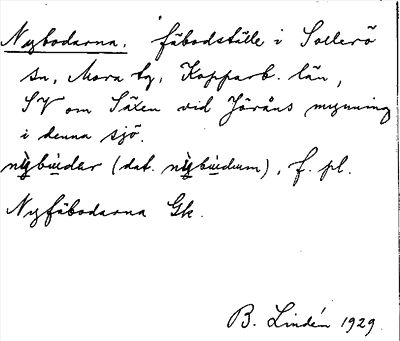 Nybodarna. fäbodställe i Sollerö
sn, Mora tg, Kopparb. län,
SV om Säxen vid Jöråns mynning
i denna sjö.
nỳbùdar (dat. nỳbùdum), f. pl.
Nyfäbodarna Gk.
B. Lindén 1929